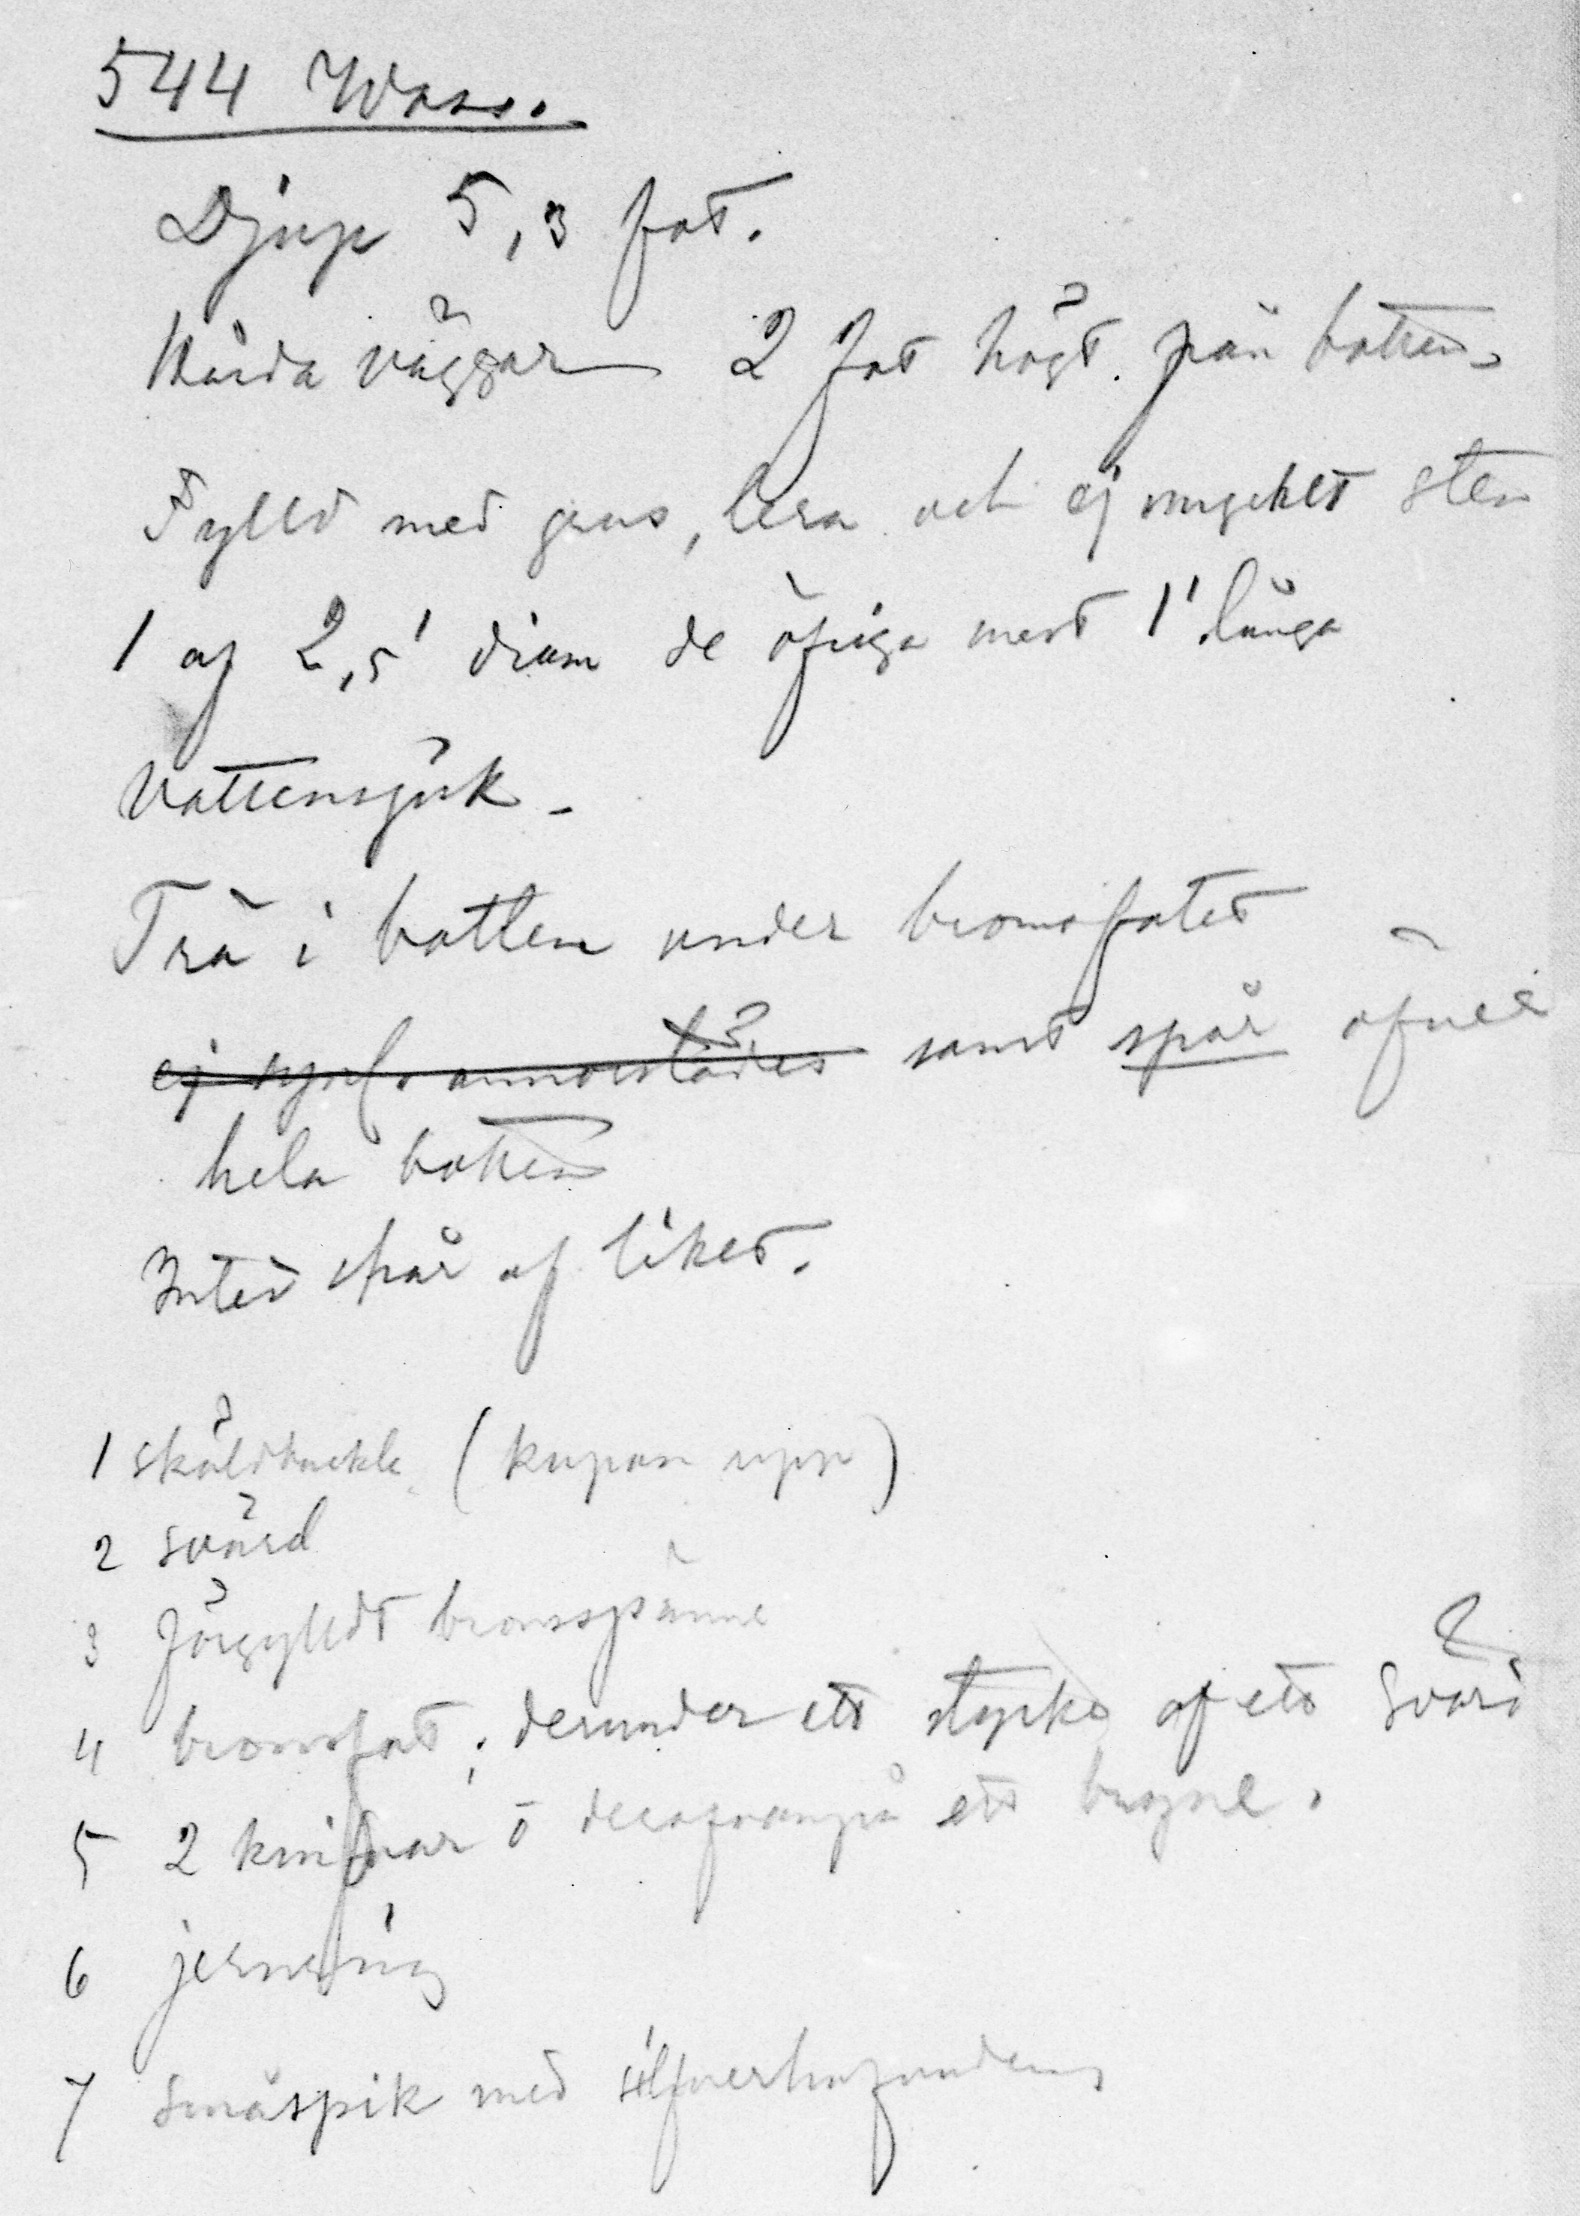 544
Djup 5,3 fot.
Hårda väggar 2 fot högt från botten
Fylld med grus, lera och ej mycket sten
1 af 2,5' diam de öfriga mest 1' långa
Vattensjuk.
Trä i botten under bronsfatet
ej annorstädes samt spår öfver
hela botten
Intet spår af liket.
1 sköldbuckla (kupan upp)
2 svärd
3 förgylldt bronsspänne
4 bronsfat; derunder ett stycke af ett svärd
5 2 knifvar o derofvanpå ett bryne.
6 jernring
7 småspik med silfverhufvuden